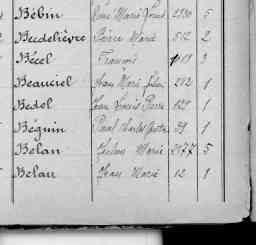 Bébin Marie 2730 5
Becdelièvre Pierre Marie 512 2
Bécel François 3
Beauciel Jean Marie 212 1
Bedol Jean Louis Pierre 129 1
Béguin Paul Charles 59 1
Belan Marie 2177 5
Belan Jean Marie 12 1